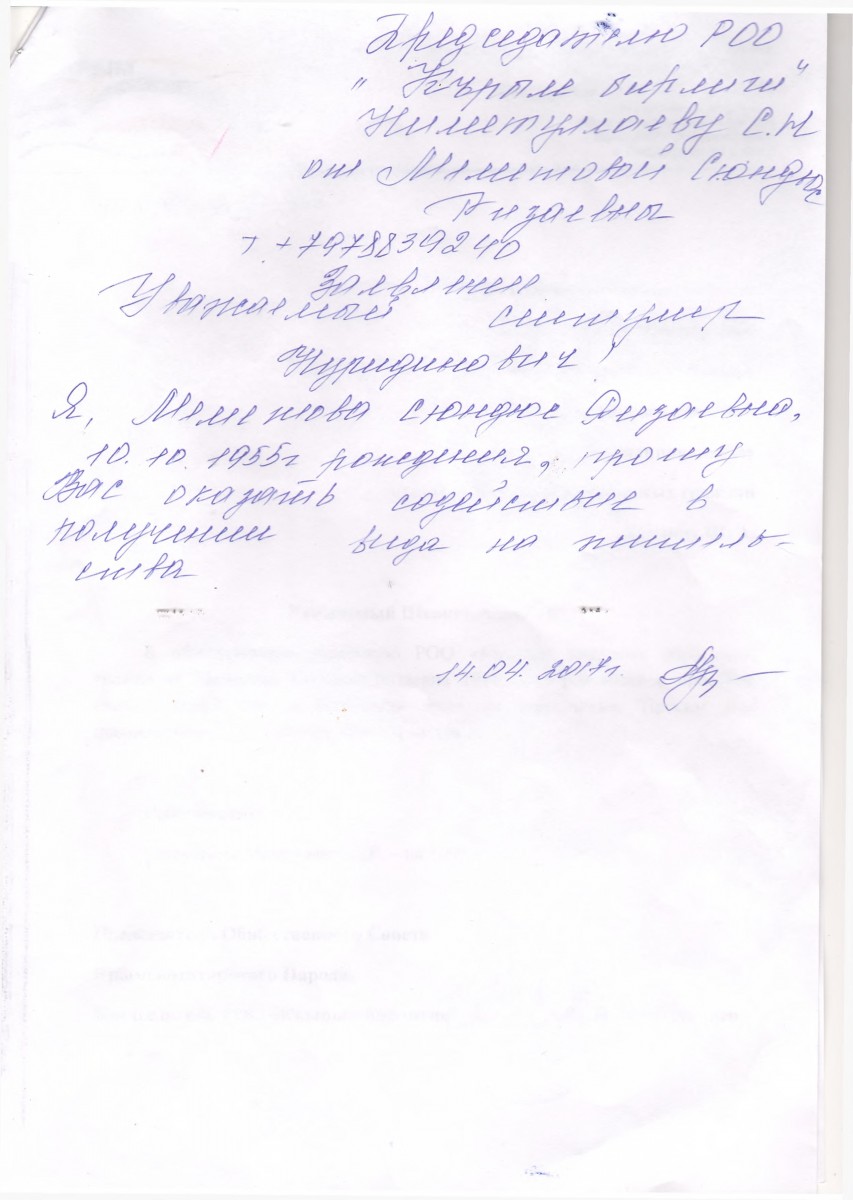 Председателю РОО
"Къырым бирлиги"
Ниметуллаеву С.Н
от Меметовой Сюндюс
Ризаевны
т +79788839240
Заявление
Уважаемый сейтумер
Нуридинович!
Я, Меметова Сюндюс Ризаевна,
10.10.1955г рождения, прошу
Вас оказать содействие в
получении вида на житель-
ства
14.04.2017г.